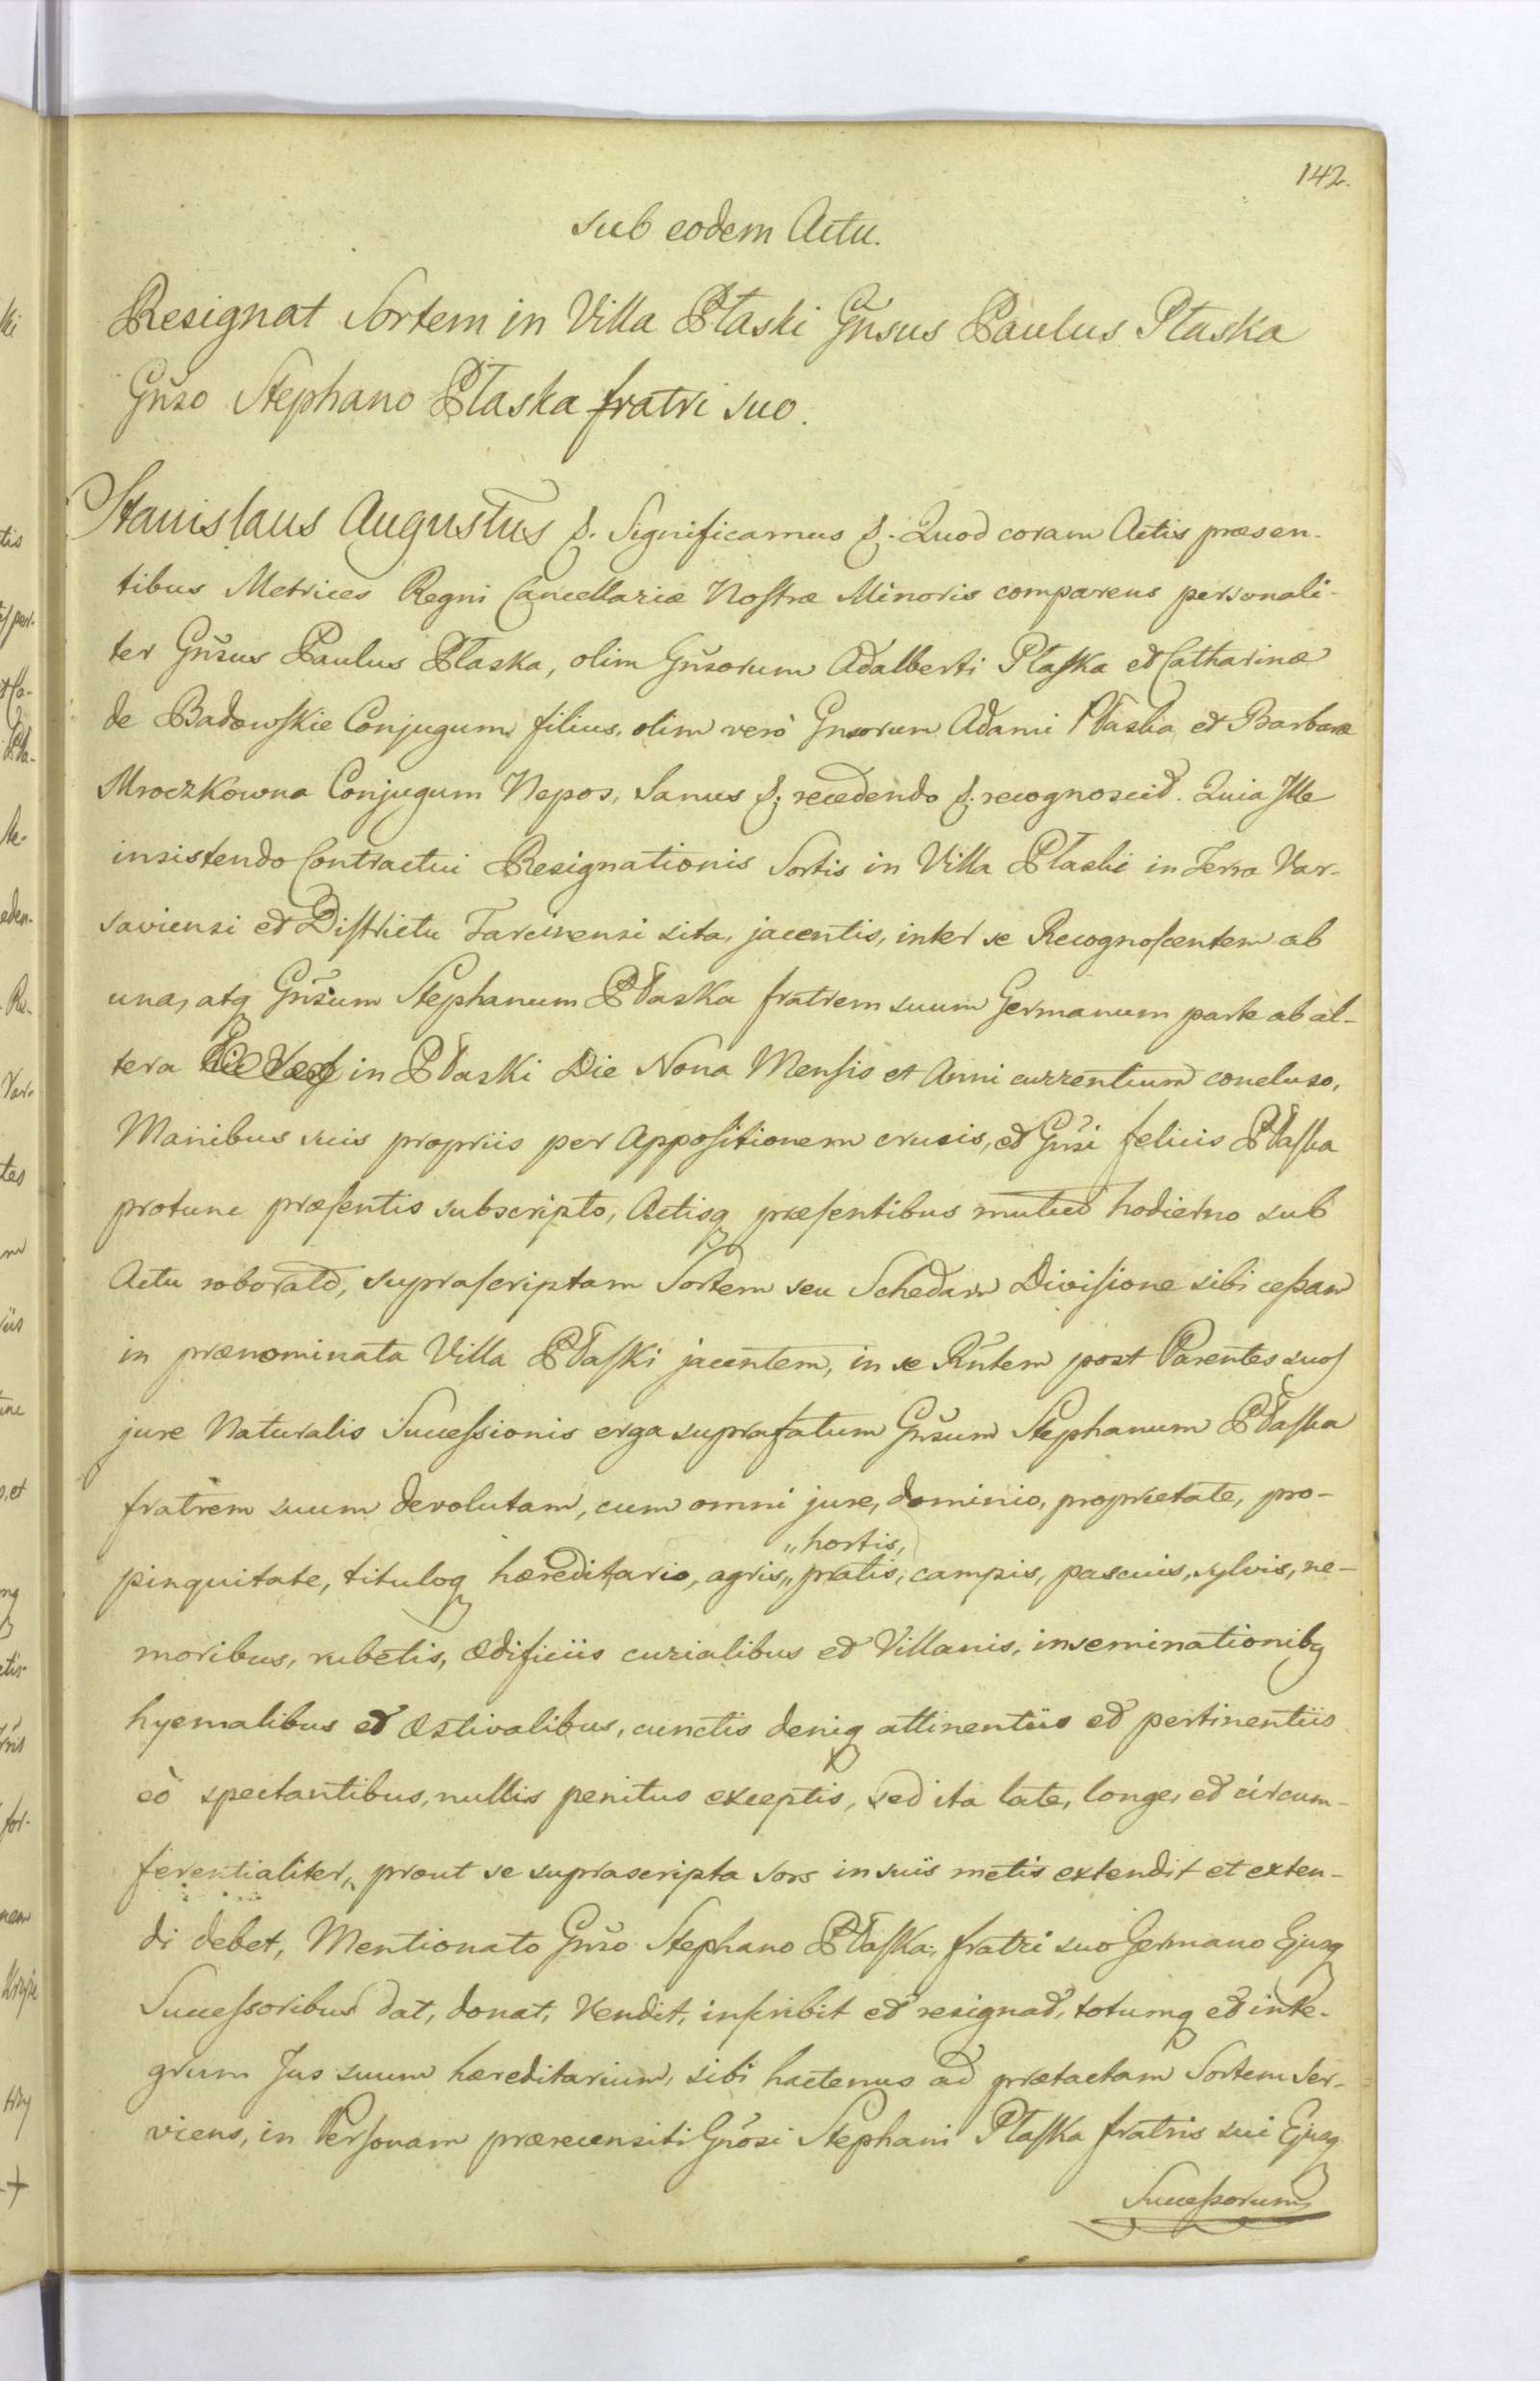 142.
sub eodem Actu.
Resignat Sortem in Villa Ptaski Gnsus Paulus Ptaska
Gnso Stephano Ptaska fratri suo.
Stanislaus Augustus &. Significamus &. Quod coram Actis præsen-
tibus Metrices Regni Cancellariæ Nostræ Minoris comparens personali-
ter Gnsus Paulus Ptaska, olim Gnsorum Adalberti Ptaska et Catharinæ
de Badowskie Conjugum filius, olim verò Gnsorum Adami Ptaska et Barbaræ
Mroczkowna Conjugum Nepos, Sanus &; recedendo &; recognoscit. Quia Ille
insistendo Contractui Resignationis Sortis in Villa Ptaski in Terra Var-
saviensi et Districtu Tarcinensi sita, jacentis, inter se Recognoscentem ab
una, atq Gnsum Stephanum Ptaska fratrem suum Germanum parte ab al-
tera in Ptaski Die Nona Mensis et Anni currentium concluso,
Manibus suis propriis per Appositionem crucis, et Gnsi felicis Ptaska
protunc præsentis subscripto, Actisq præsentibus mutuo hodierno sub
Actu roborato, suprascriptam Sortem seu Schedam Divisione sibi cessam
in prænominata Villa Ptaski jacentem, in se Rñtem post Parentes suos
jure Naturalis Successionis erga suprafatum Gnsum Stephanum Ptaska
fratrem suum devolutam, cum omni jure, dominio, proprietate, pro-
„hortis,
pinquitate, tituloq hæreditario, agris,„ pratis, campis, pascuis, sylvis, ne-
moribus, rubetis, ædificiis curialibus et Villanis, inseminationibq
hyemalibus et æstivalibus, cunctis deniq attinentiis et pertinentiis
eò spectantibus, nullis penitus exceptis, sed ita late, longe, et circum-
ferentialiter, prout se suprascripta sors in suis metis extendit et exten-
di debet, Mentionato Gnso Stephano Ptaska, fratri suo Germano Ejusq
Successoribus dat, donat, Vendit, inscribit et resignat, totumq et inte-
grum Jus suum hæreditarium, sibi hactenus ad prætactam Sortem ser-
viens, in Personam præcensiti Gnosi Stephani Ptaska fratris sui Ejusq
Successorum